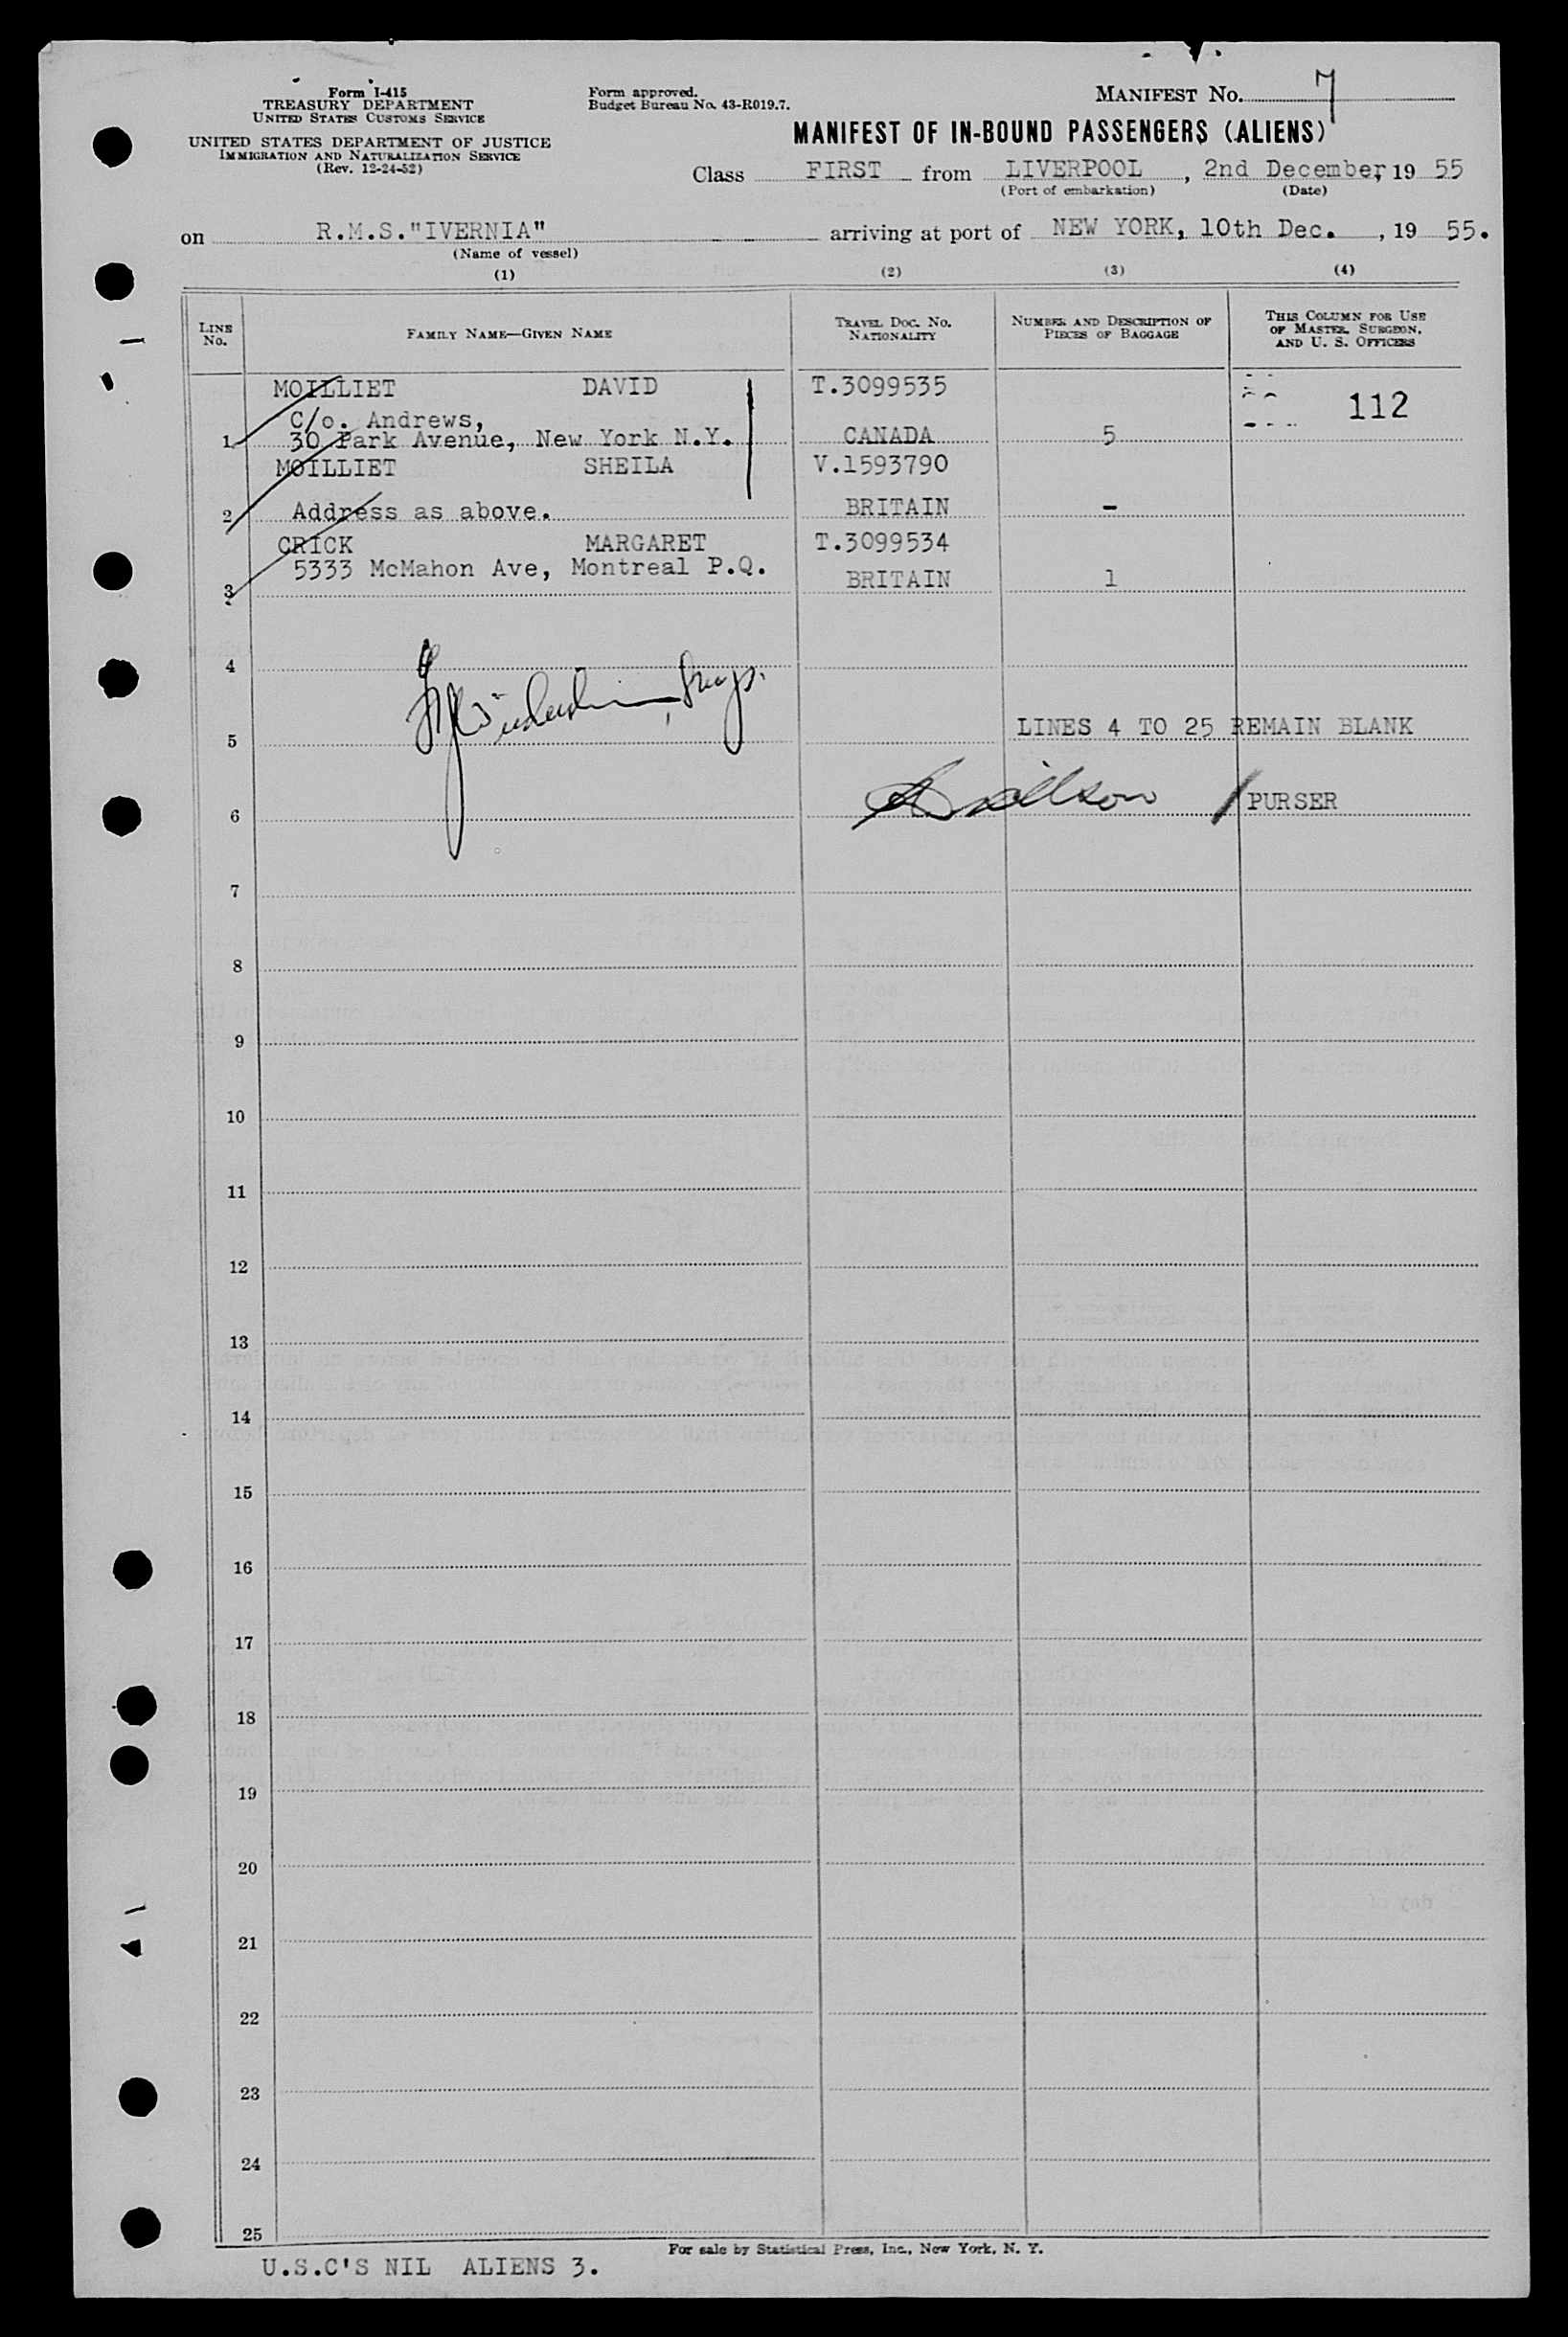 Form I-415
TREASURY DEPARTMENT
UNITED STATES CUSTOMS SERVICE
UNITED STATES DEPARTMENT OF JUSTICE
IMMIGRATION AND NATURALIZATION SERVICE
(Rev. 12-24-52)
Form approved.
Budget Bureau No. 43-R019.7.
MANIFEST No. 7
MANIFEST OF IN-BOUND PASSENGERS (ALIENS)
Class FIRST from LIVERPOOL, 2nd December, 19 55
(Port of embarkation) (Date)
on R.M.S."IVERNIA" arriving at port of NEW YORK, 10th Dec. , 19 55.
(Name of vessel)
(1) (2) (3) (4)
LINE No. FAMILY NAME—GIVEN NAME TRAVEL DOC. No. NATIONALITY NUMBER AND DESCRIPTION OF PIECES OF BAGGAGE THIS COLUMN FOR USE OF MASTER, SURGEON, AND U. S. OFFICERS
MOILLIET DAVID T.3099535
112
C/o. Andrews,
1 30 Park Avenue, New York N.Y. CANADA 5
MOILLIET SHEILA V.1593790
2 Address as above. BRITAIN -
CRICK MARGARET T.3099534
5333 McMahon Ave, Montreal P.Q.
3 BRITAIN 1
4
5 LINES 4 TO 25 REMAIN BLANK
6 PURSER
7
8
9
10
11
12
13
14
15
16
17
18
19
20
21
22
23
24
25
For sale by Statistical Press, Inc., New York, N. Y.
U.S.C'S NIL ALIENS 3.